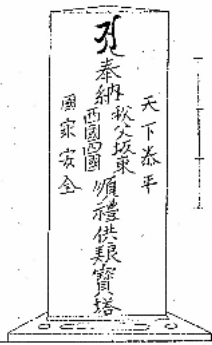 天下泰平
奉納秩父坂東
西國四國
順禮供養寶塔
國家安全